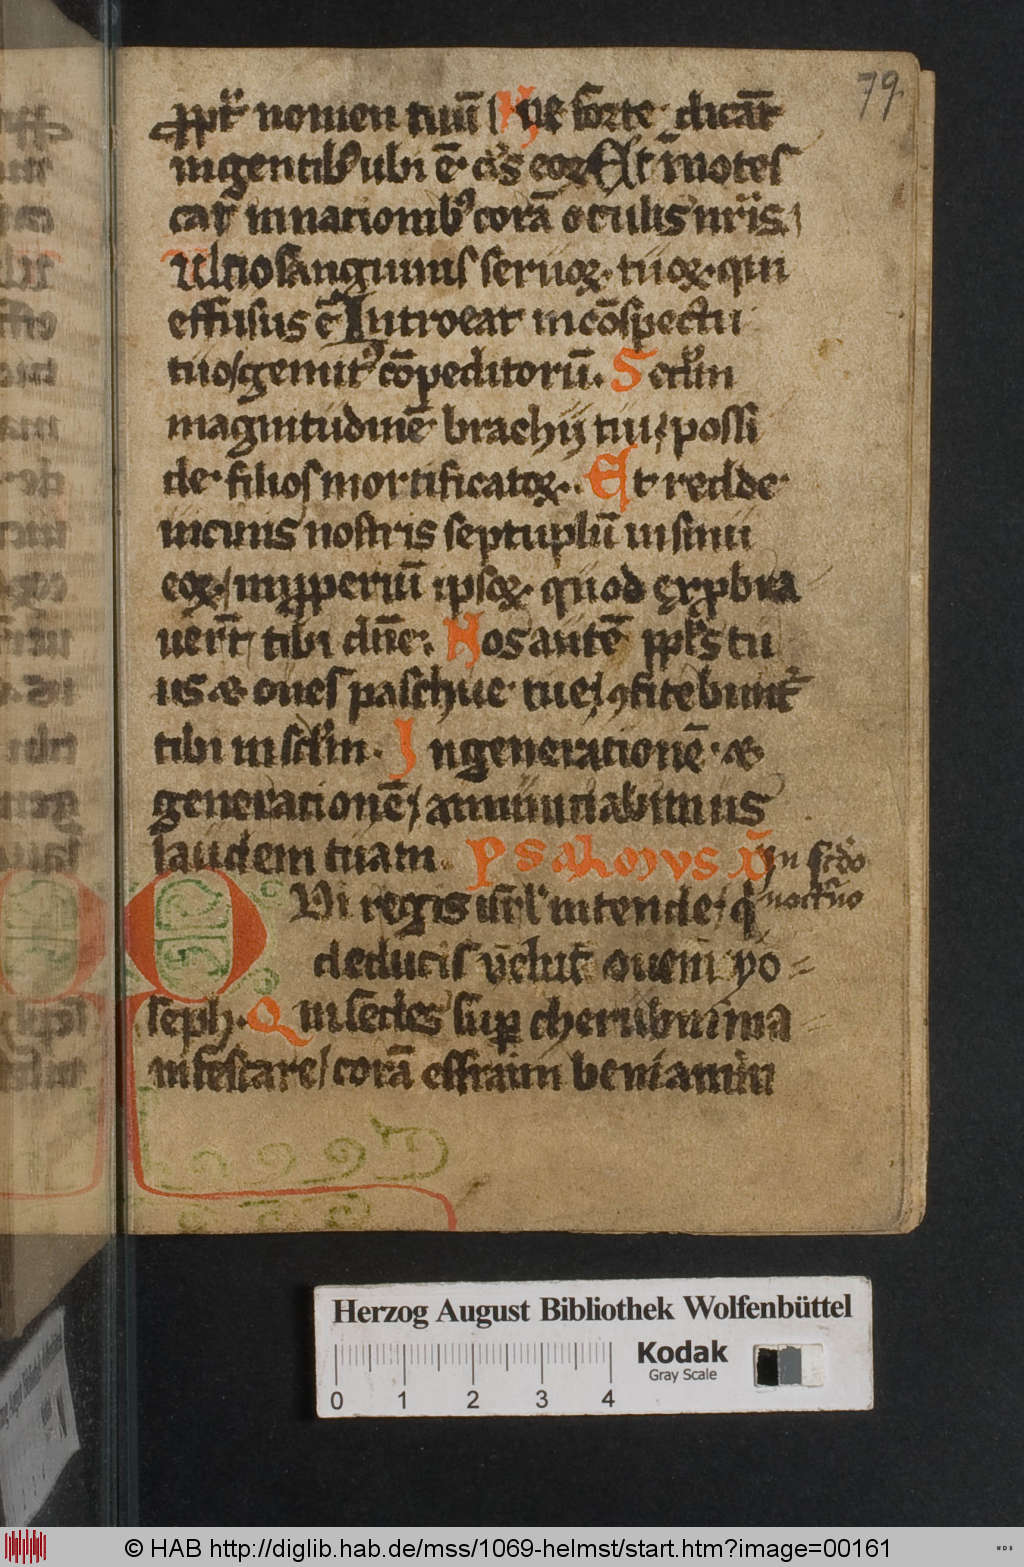 79
ꝓpt̄ nomen tuū Ne forte dicāt
in gentibꝰ ubi ē dˢ eoꝝ Et īnotes
cat̄ in nationibꝰ corā oculis nr̄is
Ultio sanguinis seruoꝝ tuoꝝ qui
effusus ē Introeat in cōspectu
tuo gemitꝰ cōpeditorū. Scd̄m
magnitudinē brachij tui possi
de filios mortificatoꝝ. Et redde
uicinis nostris septuplū in sinu
eoꝝ inpperiū ipsoꝝ quod exꝓbra
uerūt tibi dn̄e. Nos autē ppl̄s tu
us & oues paschue tue ꝯfitebimur
tibi in scl̄m. In generationē &
generationē annuntiabimus
laudem tuam Psalmus
In scd̄o
nocturno
Qui regis isrl̄ intende q̇
deducis velut ouem yo=
seph. Qui sedes sup cherubin ma
nifestare corā effraim beniamin
Herzog August Bibliothek Wolfenbüttel
Kodak
Gray Scale
0 1 2 3 4
© HAB http://diglib.hab.de/mss/1069-helmst/start.htm?image=00161